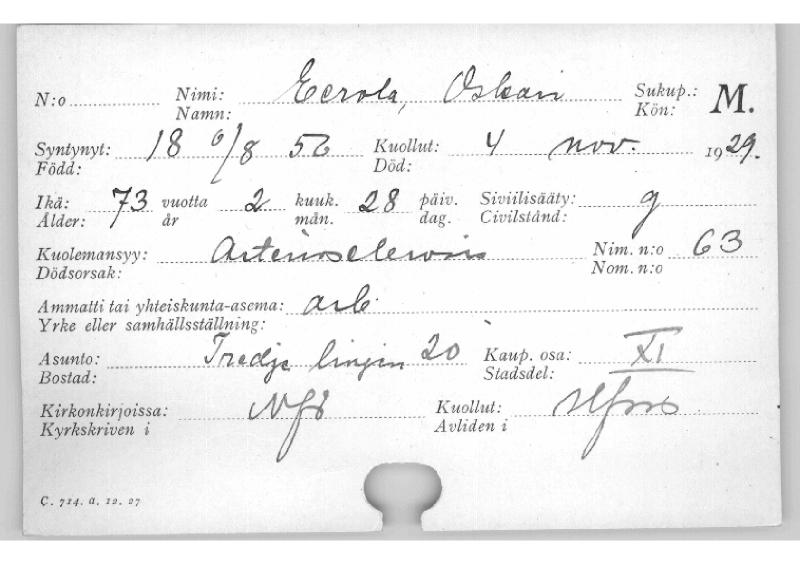 N:o Nimi: Eerola, Oskari Sukup.: M.
Namn: Kön:
Syntynyt: 18 6/8 56 Kuollut: 4 nov. 1929.
Född: Död:
Ikä: 73 vuotta 2 kuuk. 28 päiv. Siviilisääty: g
Ålder: år mån. dag. Civilstånd:
Kuolemansyy: Nim. n:o 63
Dödsorsak: Nom. n:o
Ammatti tai yhteiskunta-asema: arb
Yrke eller samhällsställning:
Asunto: Tredje linjen 20 Kaup. osa: XI
Bostad: Stadsdel:
Kirkonkirjoissa: Kuollut: Hfors
Kyrkskriven i Avliden i
C. 714. a. 12. 27